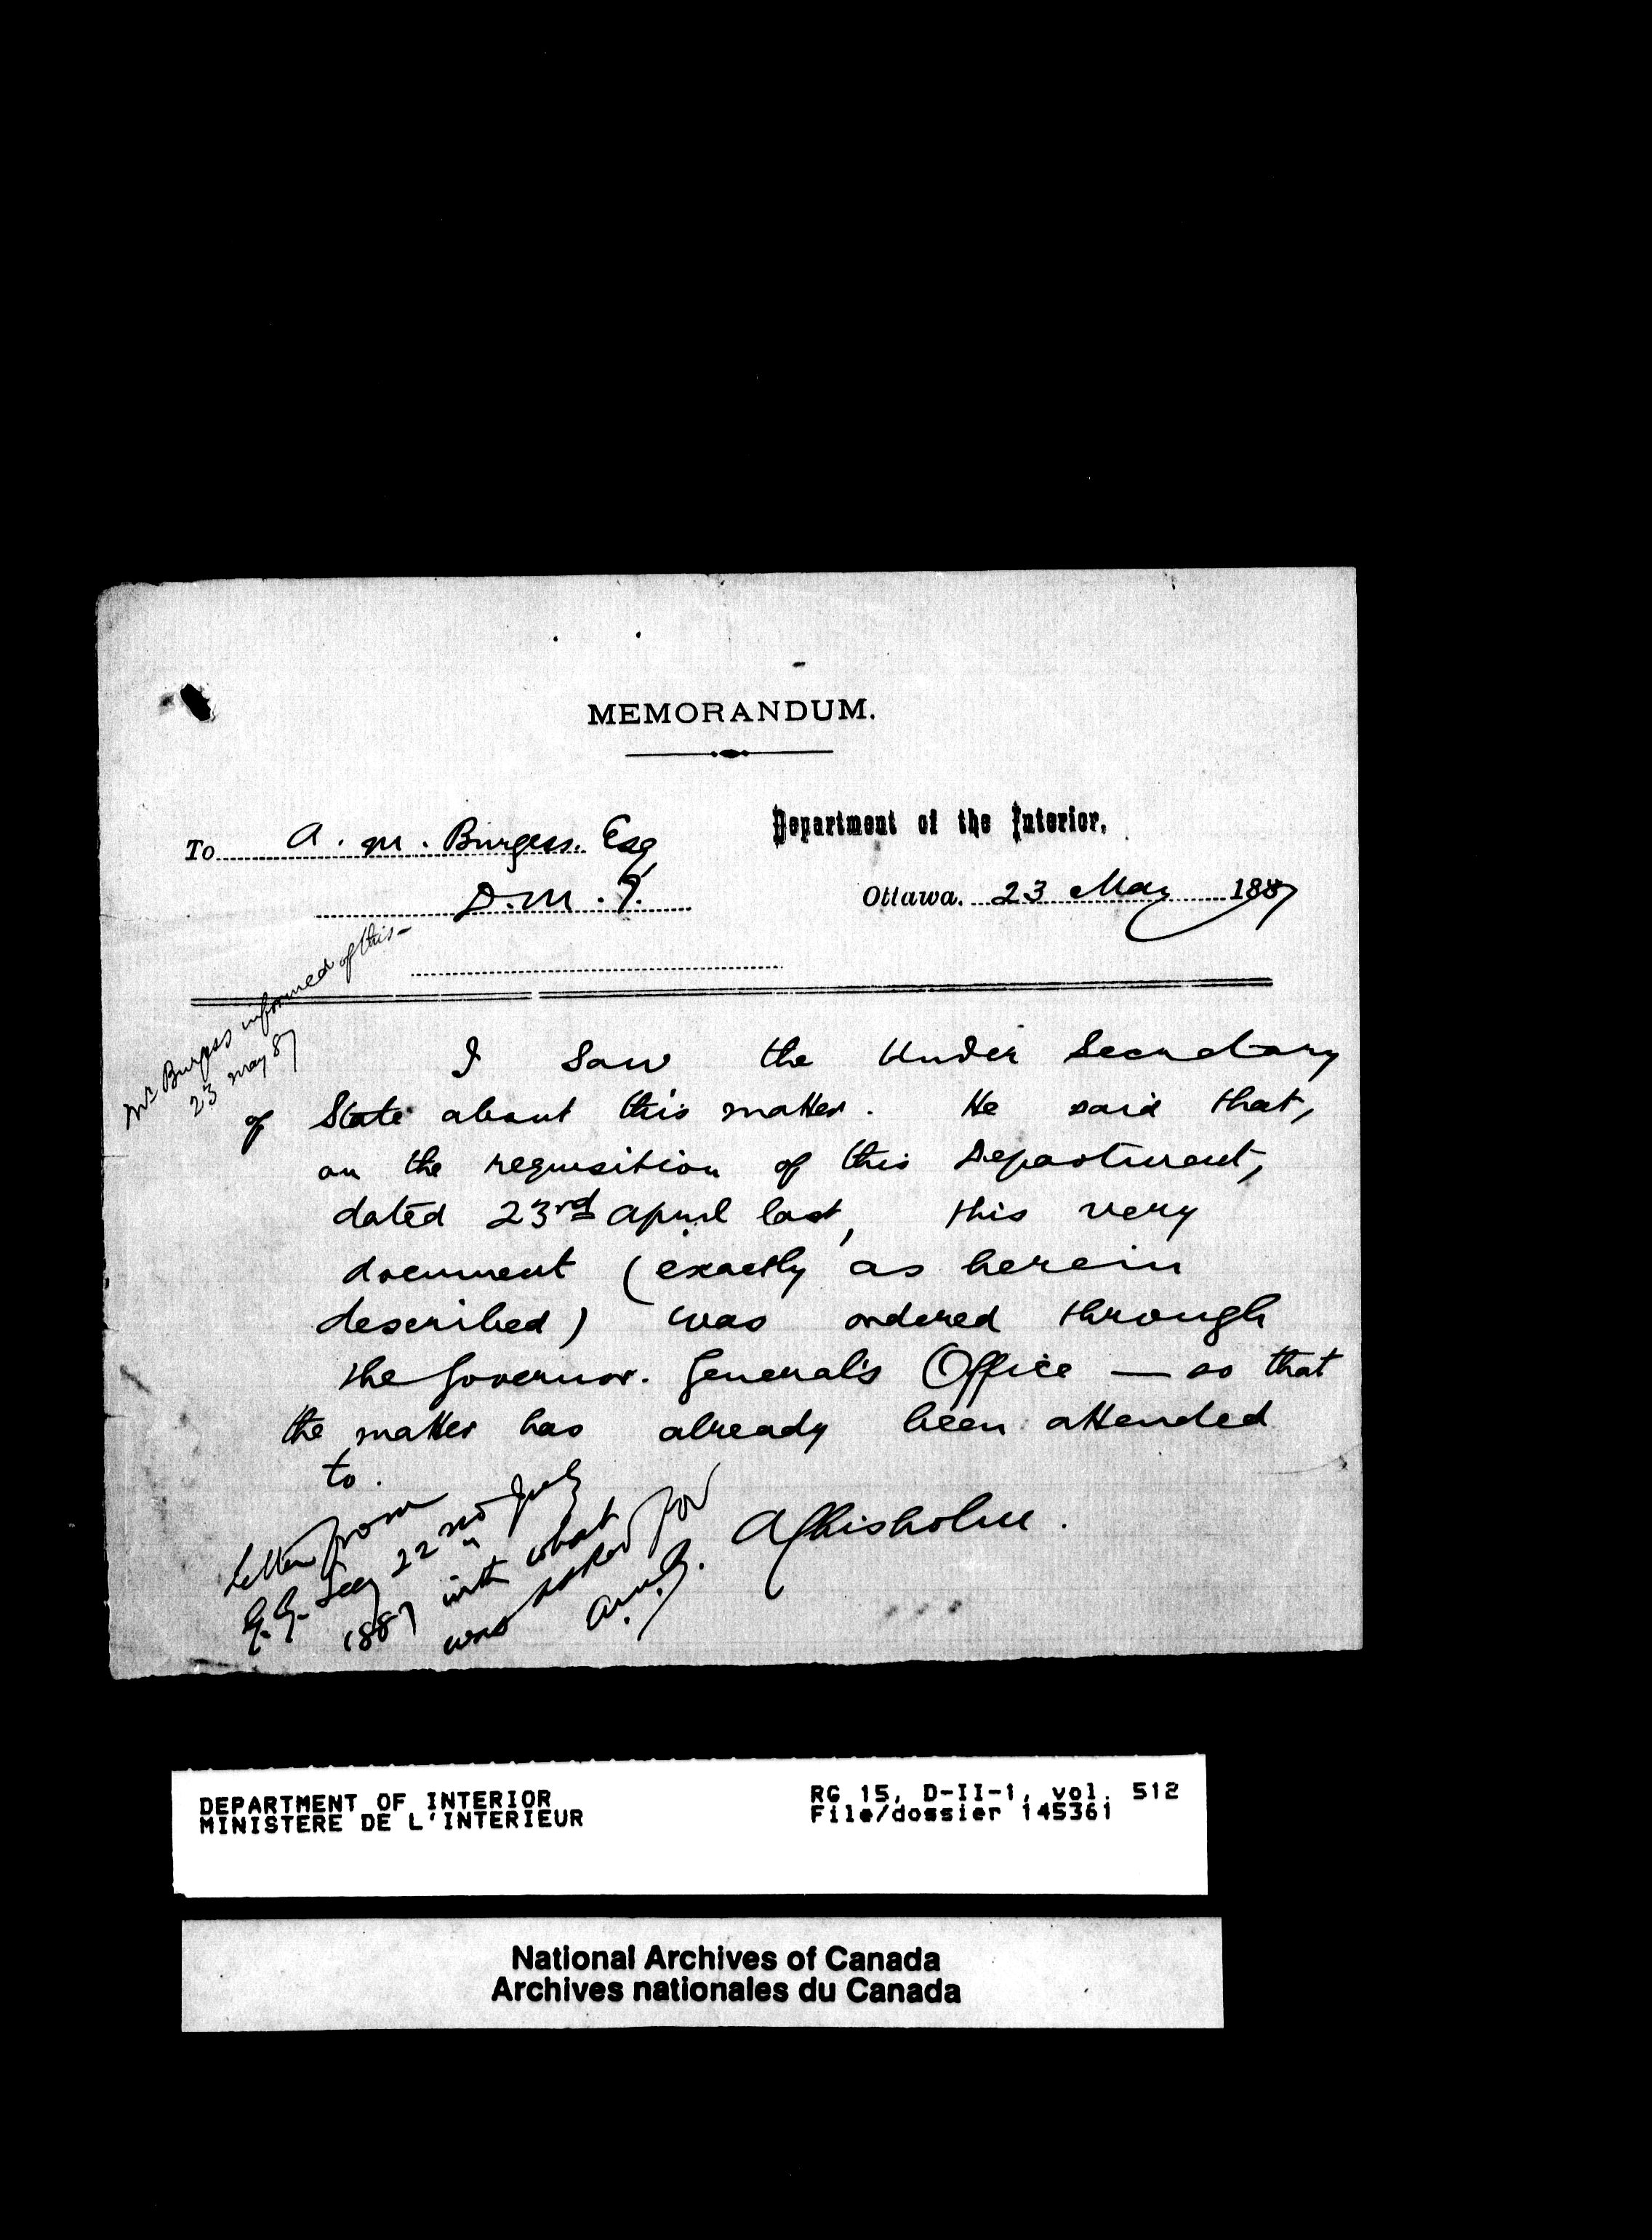 MEMORANDUM.
Department of the Interior,
To A. M. Burgess. Esq
D.M.I.
Ottawa. 23 May 1887
Mr Burgess informed of this -
23 May 87
I saw the Under Secretary
of State about this matter. He said that,
on the requisition of this Department,
dated 23rd April last, this very
document (exactly as herein
described) was ordered through
the Governor. General's Office — so that
the matter has already been attended
to.
AChisholm.
Letter from
G.G. Secy 22nd July
1887 with what
was asked for
DEPARTMENT OF INTERIOR
MINISTERE DE L'INTERIEUR
RG 15, D-II-1, vol. 512
File/dossier 145361
National Archives of Canada
Archives nationales du Canada